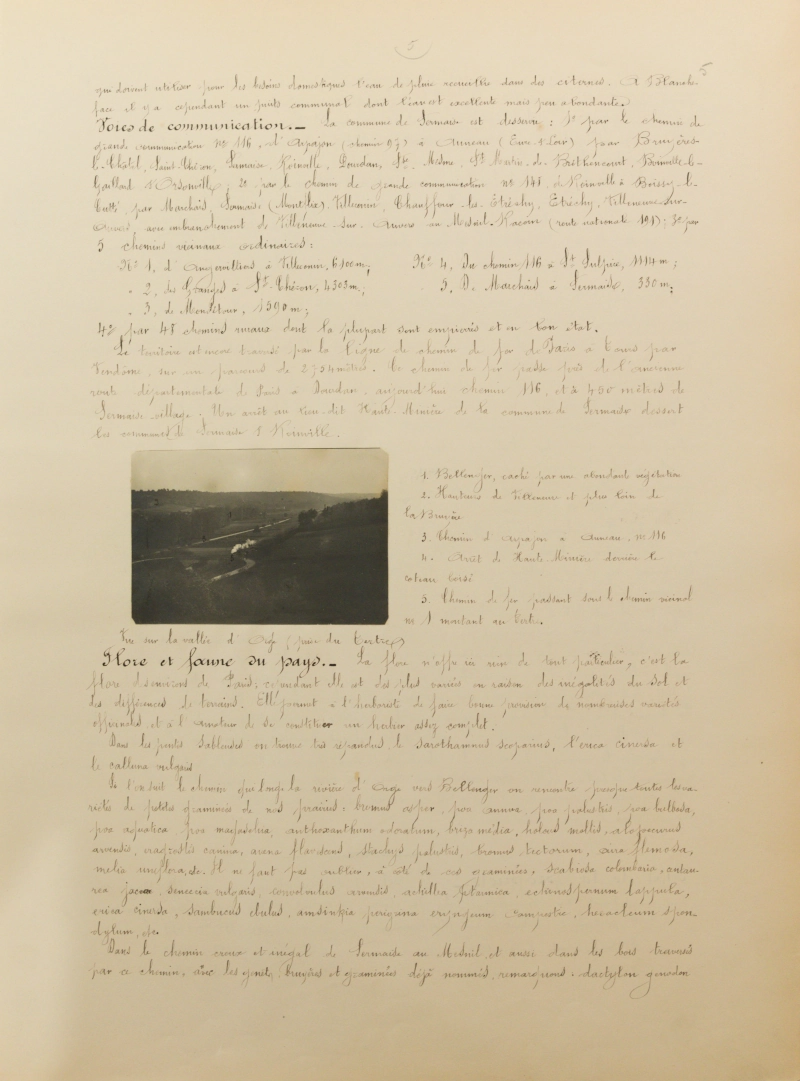 5
5
qui doivent utiliser pour les besoins domestiques l'eau de pluie recueillie dans des citernes. A Blanche-
face il y a cependant un puits communal dont l'eau est excellente mais peu abondante.
Voies de communication. — La commune de Sermaise est desservie : 1º par le chemin de
grande communication nº 116, d'Arpajon (chemin 97) à Auneau (Eure-et-Loir) par Bruyères-
le-Châtel, Saint-Chéron, Sermaise, Roinville, Dourdan, Ste Mesme, St Martin-de-Bréthencourt, Boinville-le-
Gaillard et Orsonville ; 2º par le chemin de grande communication nº 148, de Roinville à Boissy-le-
Cutté, par Marchais, Sermaise (Mondétour), Villeconin, Chauffour-les-Étréchy, Étréchy, Villeneuve-sur-
Auvers, avec embranchement de Villeneuve-sur-Auvers au Mesnil-Racoin (route nationale 191) ; 3º par
5 chemins vicinaux ordinaires :
Nº 1, d'Angervilliers à Villeconin, 6100m ; Nº 4, Du chemin 116 à St Sulpice, 1114 m ;
" 2, des Granges à St-Chéron, 4303m ; " 5, De Marchais à Sermaise, 330 m ;
" 3, de Mondétour, 1390 m ;
4º par 48 chemins ruraux dont la plupart sont empierrés et en bon état.
Le territoire est encore traversé par la ligne de chemin de fer de Paris à Tours par
Vendôme, sur un parcours de 2754 mètres. Ce chemin de fer passe près de l'ancienne
route départementale de Paris à Dourdan, aujourd'hui chemin 116, et à 400 mètres de
Sermaise-village. Un arrêt au lieu-dit Haute-Minière de la commune de Sermaise dessert
les communes de Sermaise et Roinville.
1. Bellanger, caché par une abondante végétation
2. Hauteurs de Villeneuve et plus loin de
la Bruyère
3. Chemin d'Arpajon à Auneau, nº 116
4. Arrêt de Haute-Minière derrière le
coteau boisé
5. Chemin de fer passant sous le chemin vicinal
nº 1 montant au Tertre.
Vue sur la vallée d'Orge (prise du Tertre)
Flore et faune du pays. — La flore n'offre ici rien de tout particulier, c'est la
flore des environs de Paris ; cependant elle est des plus variées en raison des inégalités du sol et
des différences de terrains. Elle permet à l'herboriste de faire bonne provision de nombreuses variétés
officinales, et à l'amateur de se constituer un herbier assez complet.
Dans les pentes sableuses on trouve très répandus, le sarothamnus scoparius, l'erica cinerea et
le calluna vulgaris
Si l'on suit le chemin qui longe la rivière d'Orge vers Bellanger on rencontre presque toutes les va-
riétés de petites graminées de nos prairies : bromus asper, poa annua, poa palustris, poa bulbosa,
poa aquatica, poa megastachia, anthoxanthum odoratum, briza media, holcus mollis, alopecurus
arvensis, eragrostis canina, avena flavescens, stachys palustris, bromus tectorum, aira flexuosa,
melica uniflora, etc. Il ne faut pas oublier, à côté de ces graminées, scabiosa colombaria, centau-
rea jacea, senecio vulgaris, convolvulus arvensis, achillea ptarmica, echinospermum lappula,
erica cinerea, sambucus ebulus, amsinkia eryngium campestre, heracleum spon-
dylium, etc.
Dans le chemin creux et inégal de Sermaise au Mesnil, et aussi dans les bois traversés
par ce chemin, avec les genêts, bruyères et graminées déjà nommés, remarquons : dactylon